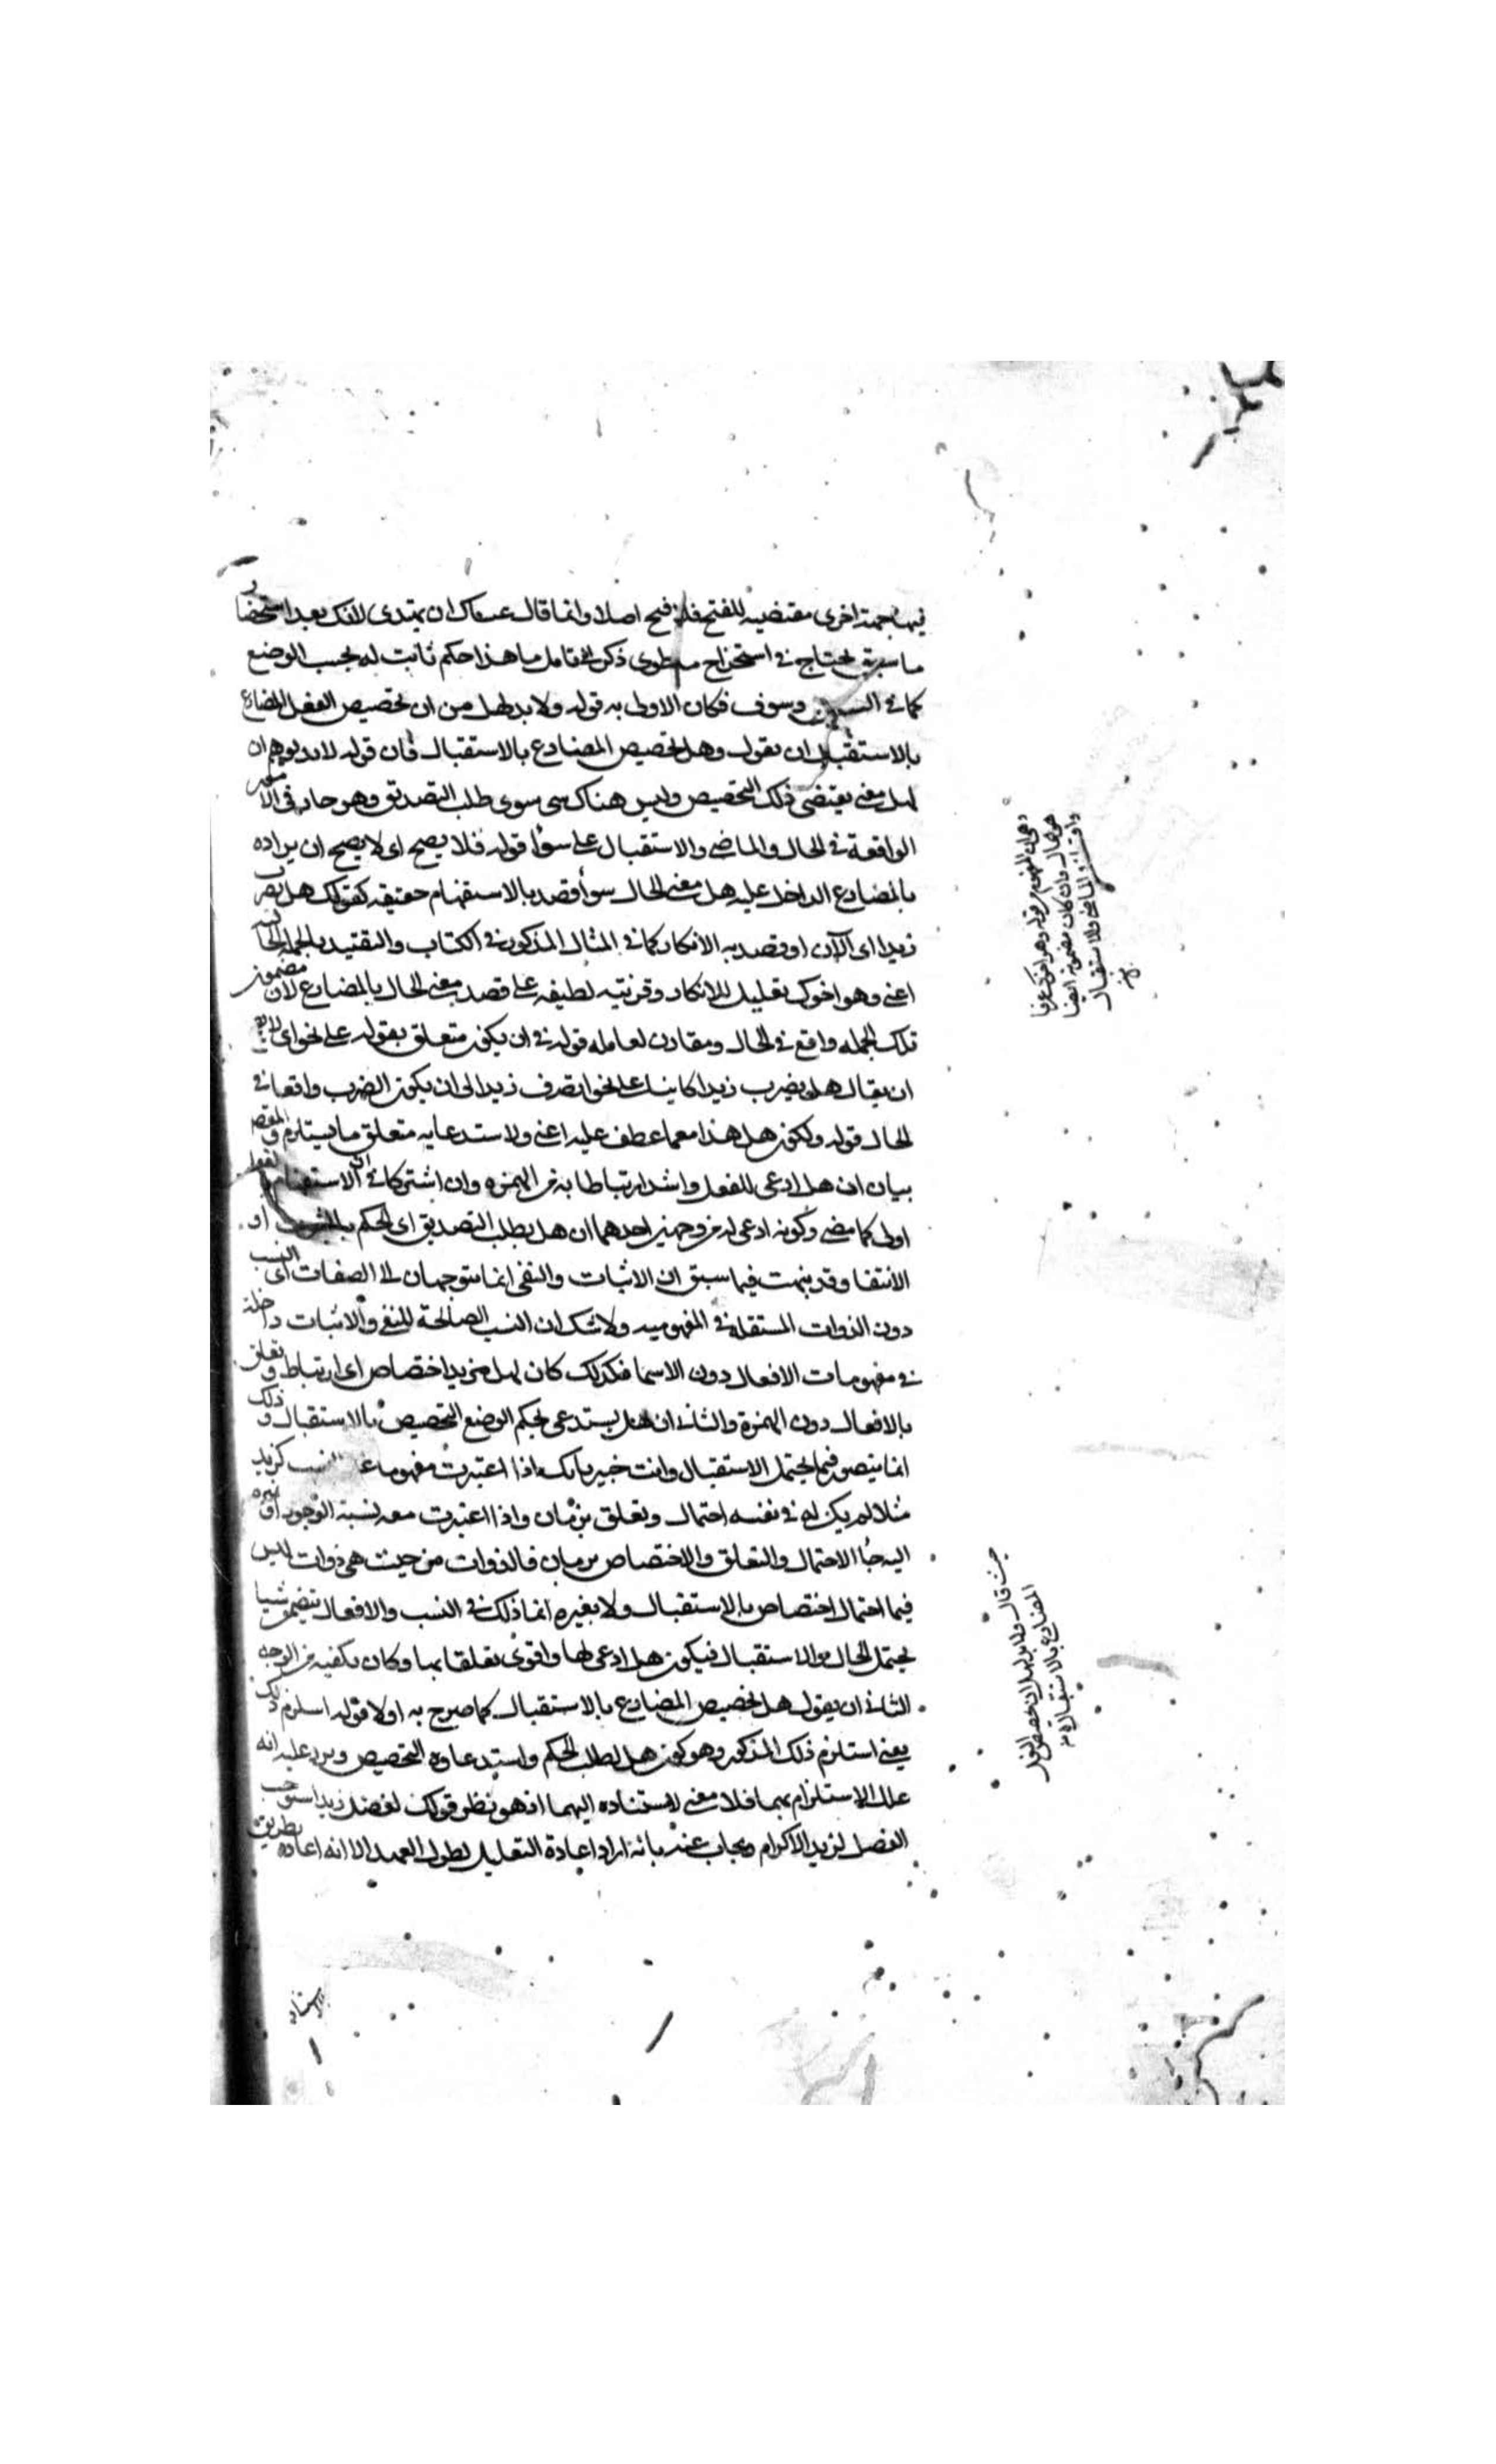 فيها جهة اخرى مقتضية للفتح فلا فتح اصلا وانما قال عساك ان تهتدى لذلك بعد استحضار
ما سبق يحتاج فى استخراج مطوى ذكر الى تامل ما هذا حكم ثابت له بحسب الوضع
كما فى السين وسوف فكان الاولى به قوله ولا بد لهل من ان تخصيص الفعل المضارع
بالاستقبال ان يقول وهل تخصيص المضارع بالاستقبال فان قوله لا بد يوهم ان
لهل معنى يقتضى ذلك التخصيص وليس هناك شى سوى طلب التصديق وهو جار فى الامور
الواقعة فى الحال والماضى والاستقبال على سوأ قوله فلا يصح اى لا يصح ان يراد
بالمضارع الداخل عليه هل معنى الحال سوأ قصد بالاستفهام حقيقته كقولك هل تضرب
زيدا اى الآن او قصد به الانكار كما فى المثال المذكور فى الكتاب والتقييد بالجملة الحالية
اعنى وهو اخوك تعليل للانكار وقرينة لطيفة على قصد معنى الحال بالمضارع لان مضمون
تلك الجملة واقع فى الحال ومقارن لعامله قوله فى ان يكون متعلق بقوله على نحو اى لا يصح
ان يقال هل يضرب زيدا كاينا على نحو اتضرب زيدا فى ان يكون الضرب واقعا فى
الحال قوله ولكون هل هذا مع ما عطف عليه اعنى ولاستدعايه متعلق ما يستلزم والمقصود
بيان ان هل ادعى للفعل واشد ارتباطا به من الهمزة وان اشتركا فى ان الاستفهام بالفعل
اولى كما مضى وكونه ادعى له من وجهين احدهما ان هل يطلب التصديق اى الحكم بالثبوت او
الانتفا وقد نبهت فيما سبق ان الاثبات والنفى انما يتوجهان الى الصفات اى النسب
دون الذوات المستقلة فى المفهومية ولا شك ان النسب الصالحة للنفى والاثبات داخلة
فى مفهومات الافعال دون الاسما فكذلك كان لهل مزيد اختصاص اى ارتباط وتعلق
بالافعال دون الهمزة والثانى ان هل يستدعى بحكم الوضع التخصيص بالاستقبال وذلك
انما يتصور فيما يحتمل الاستقبال وانت خبير بانك اذا اعتبرت مفهوما النسب كزيد
مثلا لم يكن له فى نفسه احتمال وتعلق بزمان واذا اعتبرت معه نسبة الوجود او غيره
اليه جأ الاحتمال والتعلق والاختصاص بزمان فالذوات من حيث هى ذوات ليس
فيها احتمال اختصاص بالاستقبال ولا بغيره انما ذلك فى النسب والافعال تتضمن شيا
يحتمل الحال والاستقبال فيكون هل ادعى لها واقوى تعلقا بها وكان يكفيه من الوجه
الثانى ان يقول هل تخصيص المضارع بالاستقبال كما صرح به اولا قوله استلزم ذلك
يعنى استلزم ذلك المذكور وهو كون هل لطلب الحكم واستدعاوه التخصيص ويرد عليه انه
علل الاستلزام بهما فلا معنى لاستناده اليهما اذ هو نظير قولك لفضل زيد استوجب
الفضل لزيد الاكرام ويجاب عنه بانه اراد اعادة التعليل لطول العهد الا انه اعاده بطريق
هو الحال وان كان مضمونه ايضا
الماضى والاستقبال
حيث قال ولا بد لهل ان تخصص الفعل
المضارع بالاستقبال